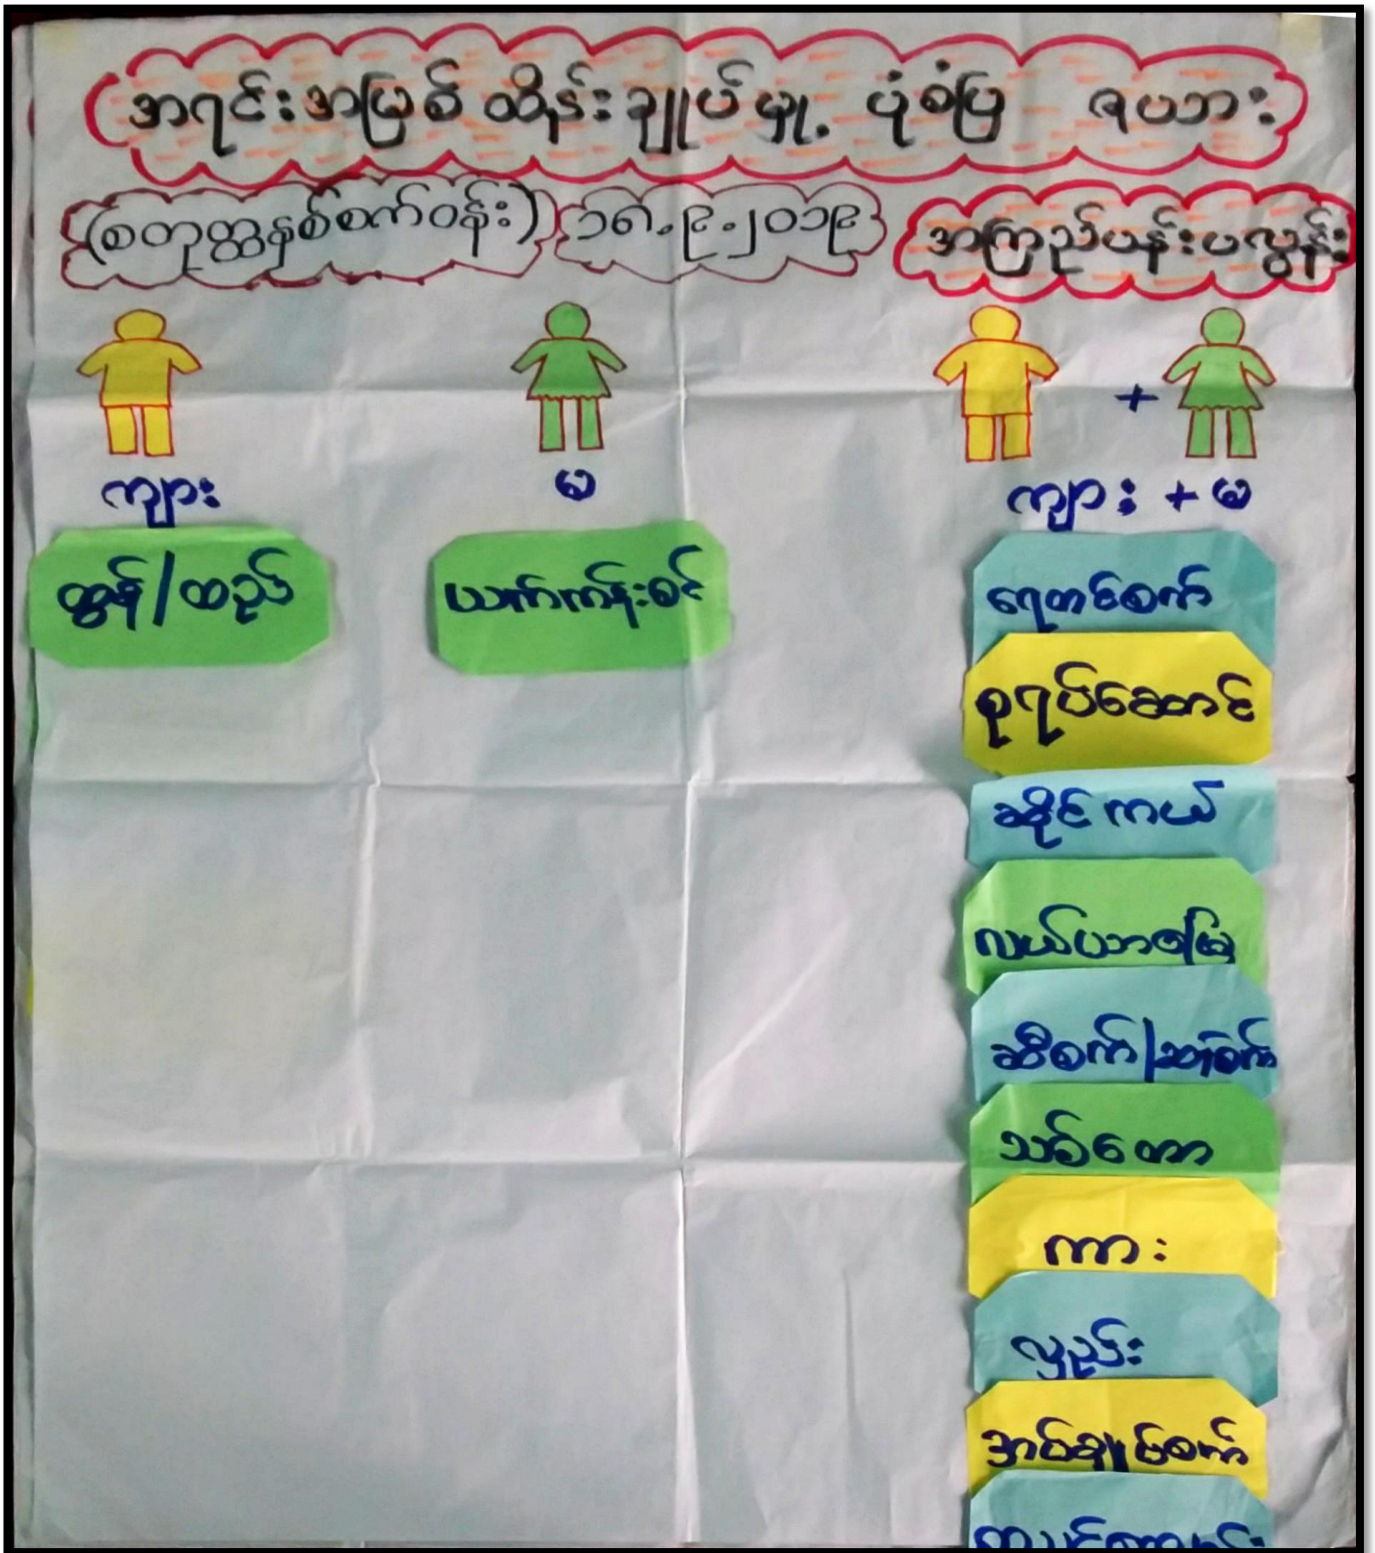 အရင်းအမြစ် ထိန်းချုပ်မှု ပုံစံပြ ဇယား
(စတုတ္ထနှစ်စက်ဝန်း) ၁၆.၉.၂၀၁၉ အကြည်ပန်းပလွန်း
ကျား
မ
ကျား + မ
ထွန်/ထည်
ယက်ကန်းစင်
ရေတင်စက်
စုရပ်ဆောင်
ဆိုင်ကယ်
လယ်ယာမြေ
ဆီစက်/ဆန်စက်
သစ်တော
ကား
လှည်း
အပ်ချုပ်စက်